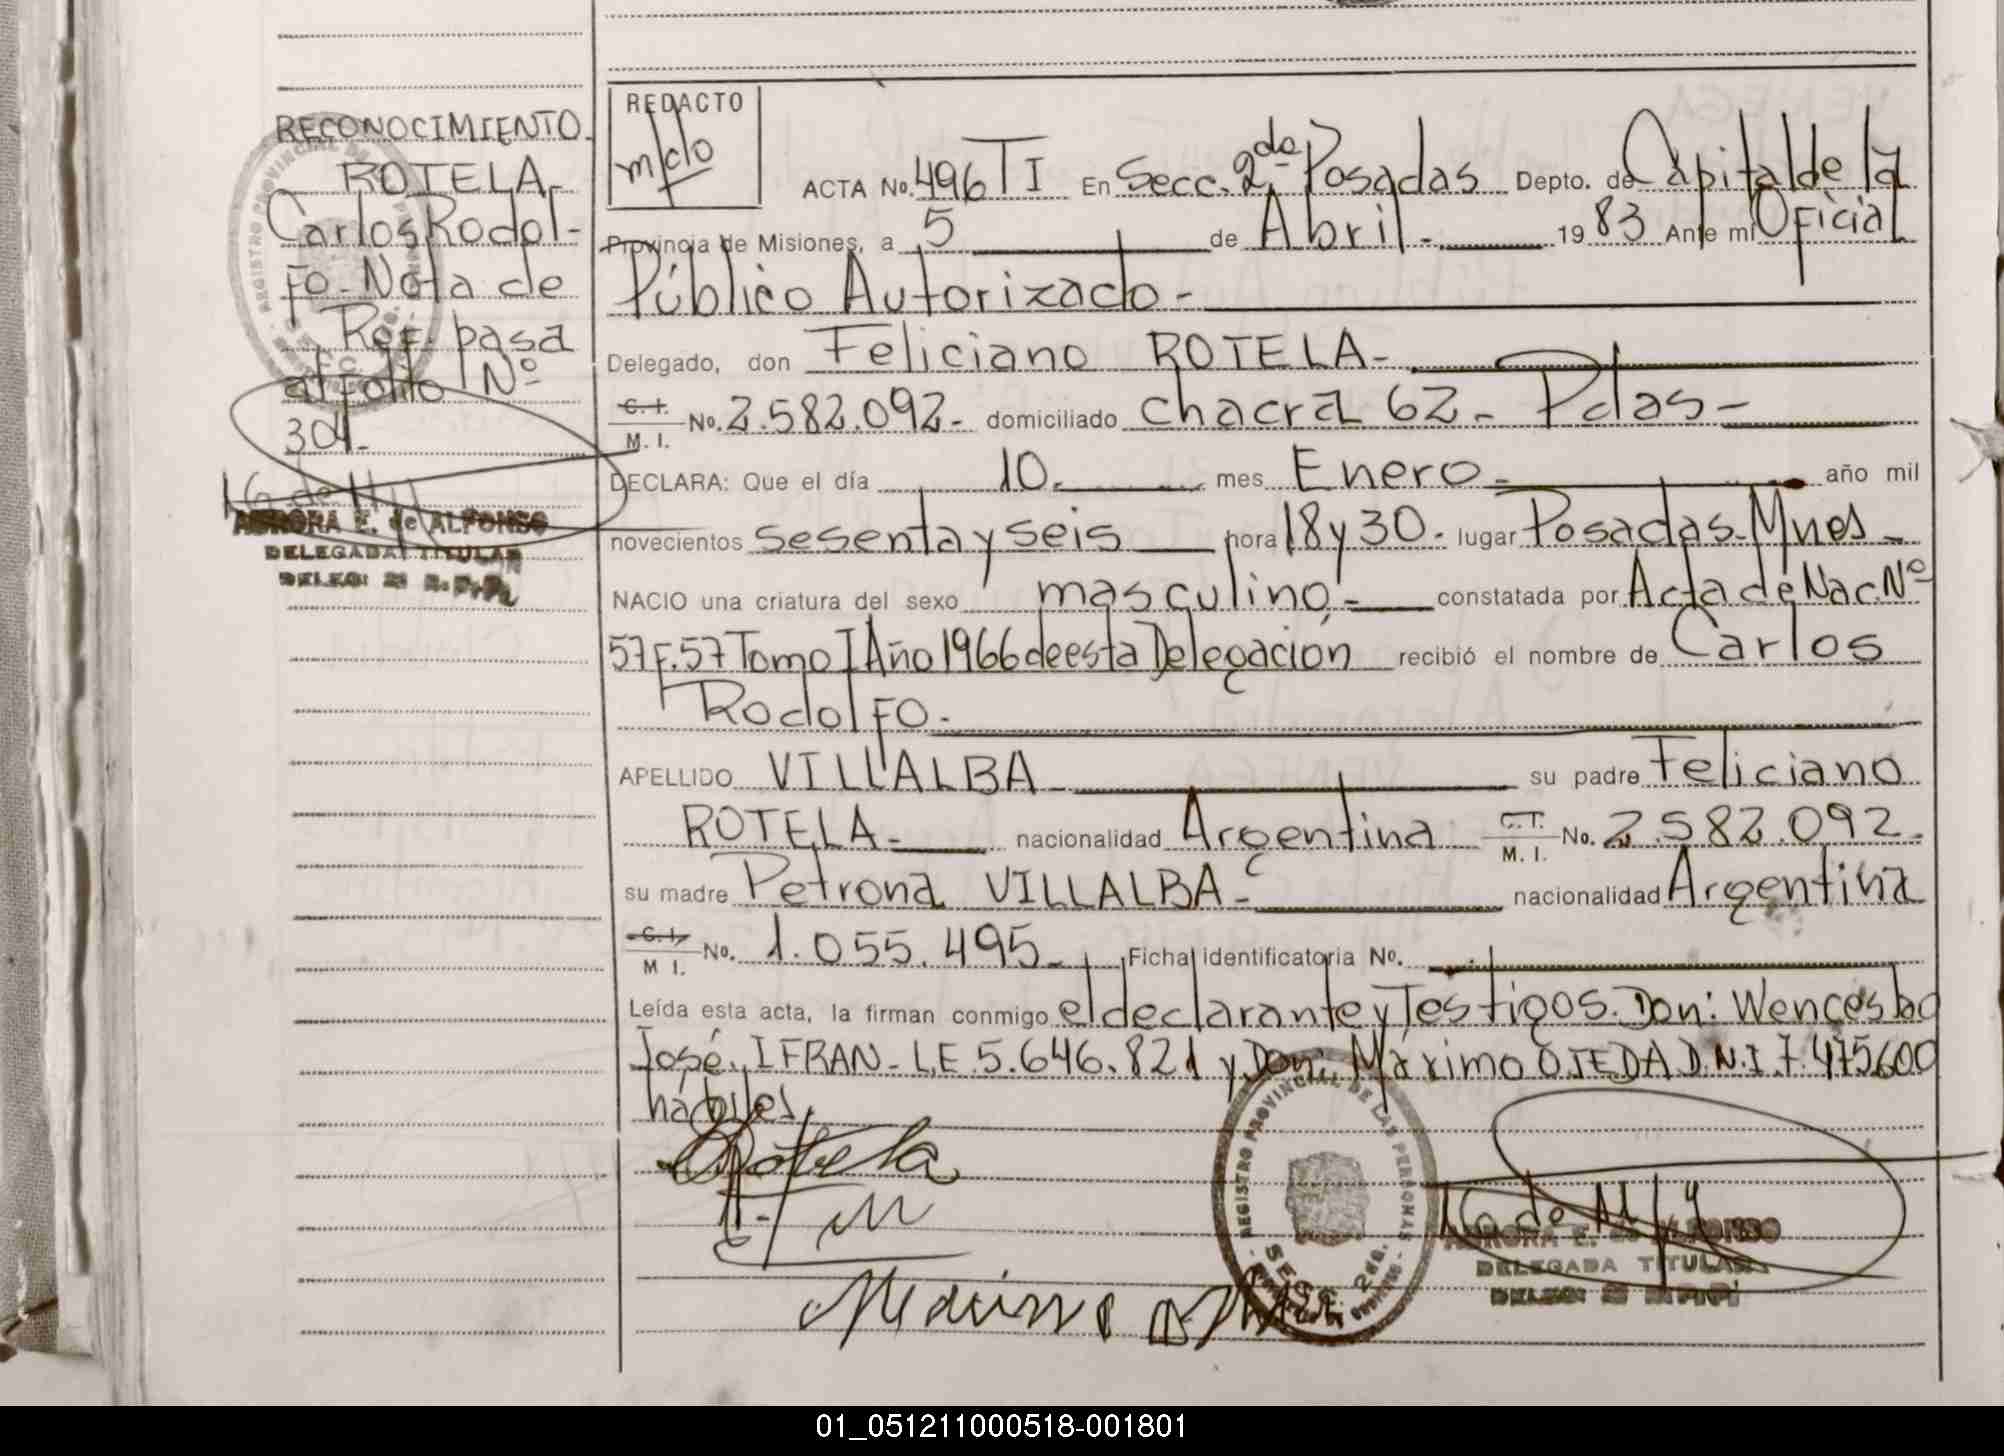 RECONOCIMIENTO.
ROTELA
Carlos Rodol-
fo - Nota de
Ref. pasa
al Folio Nº
304.-
AURORA E. de ALFONSO
DELEGADA TITULAR
REDACTO
ACTA No. 496 T I En Secc. 2da Posadas Depto. de Capital de la
Provincia de Misiones, a 5 de Abril.- 19 83 Ante mi Oficial
Público Autorizado -
Delegado, don Feliciano ROTELA-
C. I. M. I. No. 2.582.092- domiciliado chacra 62 - Pdas-
DECLARA: Que el día 10. mes Enero.- año mil
novecientos sesenta y seis hora 18 y 30.- lugar Posadas-Mnes-
NACIO una criatura del sexo masculino.- constatada por Acta de Nac. Nº
57 F. 57 Tomo I Año 1966 de esta Delegación recibió el nombre de Carlos
Rodolfo.-
APELLIDO VILLALBA - su padre Feliciano
ROTELA- nacionalidad Argentina C. I. M. I. No. 2.582.092-
su madre Petrona VILLALBA- nacionalidad Argentina
C. I. M I. No. 1.055.495- Ficha identificatoria No.
Leída esta acta, la firman conmigo el declarante y Testigos. Don: Wenceslao
José, IFRAN - L.E. 5.646.821 y Don: Máximo OJEDA D.N.I. 7.475.600
hábiles.
Rotela
REGISTRO PROVINCIAL DE LAS PERSONAS
AURORA E. de ALFONSO
DELEGADA TITULAR
01_051211000518-001801